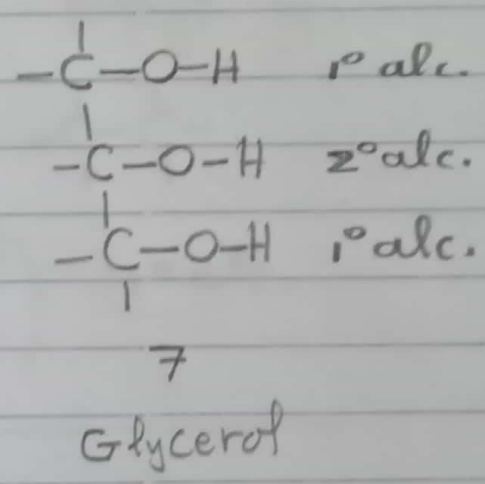 -C-O-H 1° alc.
-C-O-H 2° alc.
-C-O-H 1° alc.
7
Glycerol